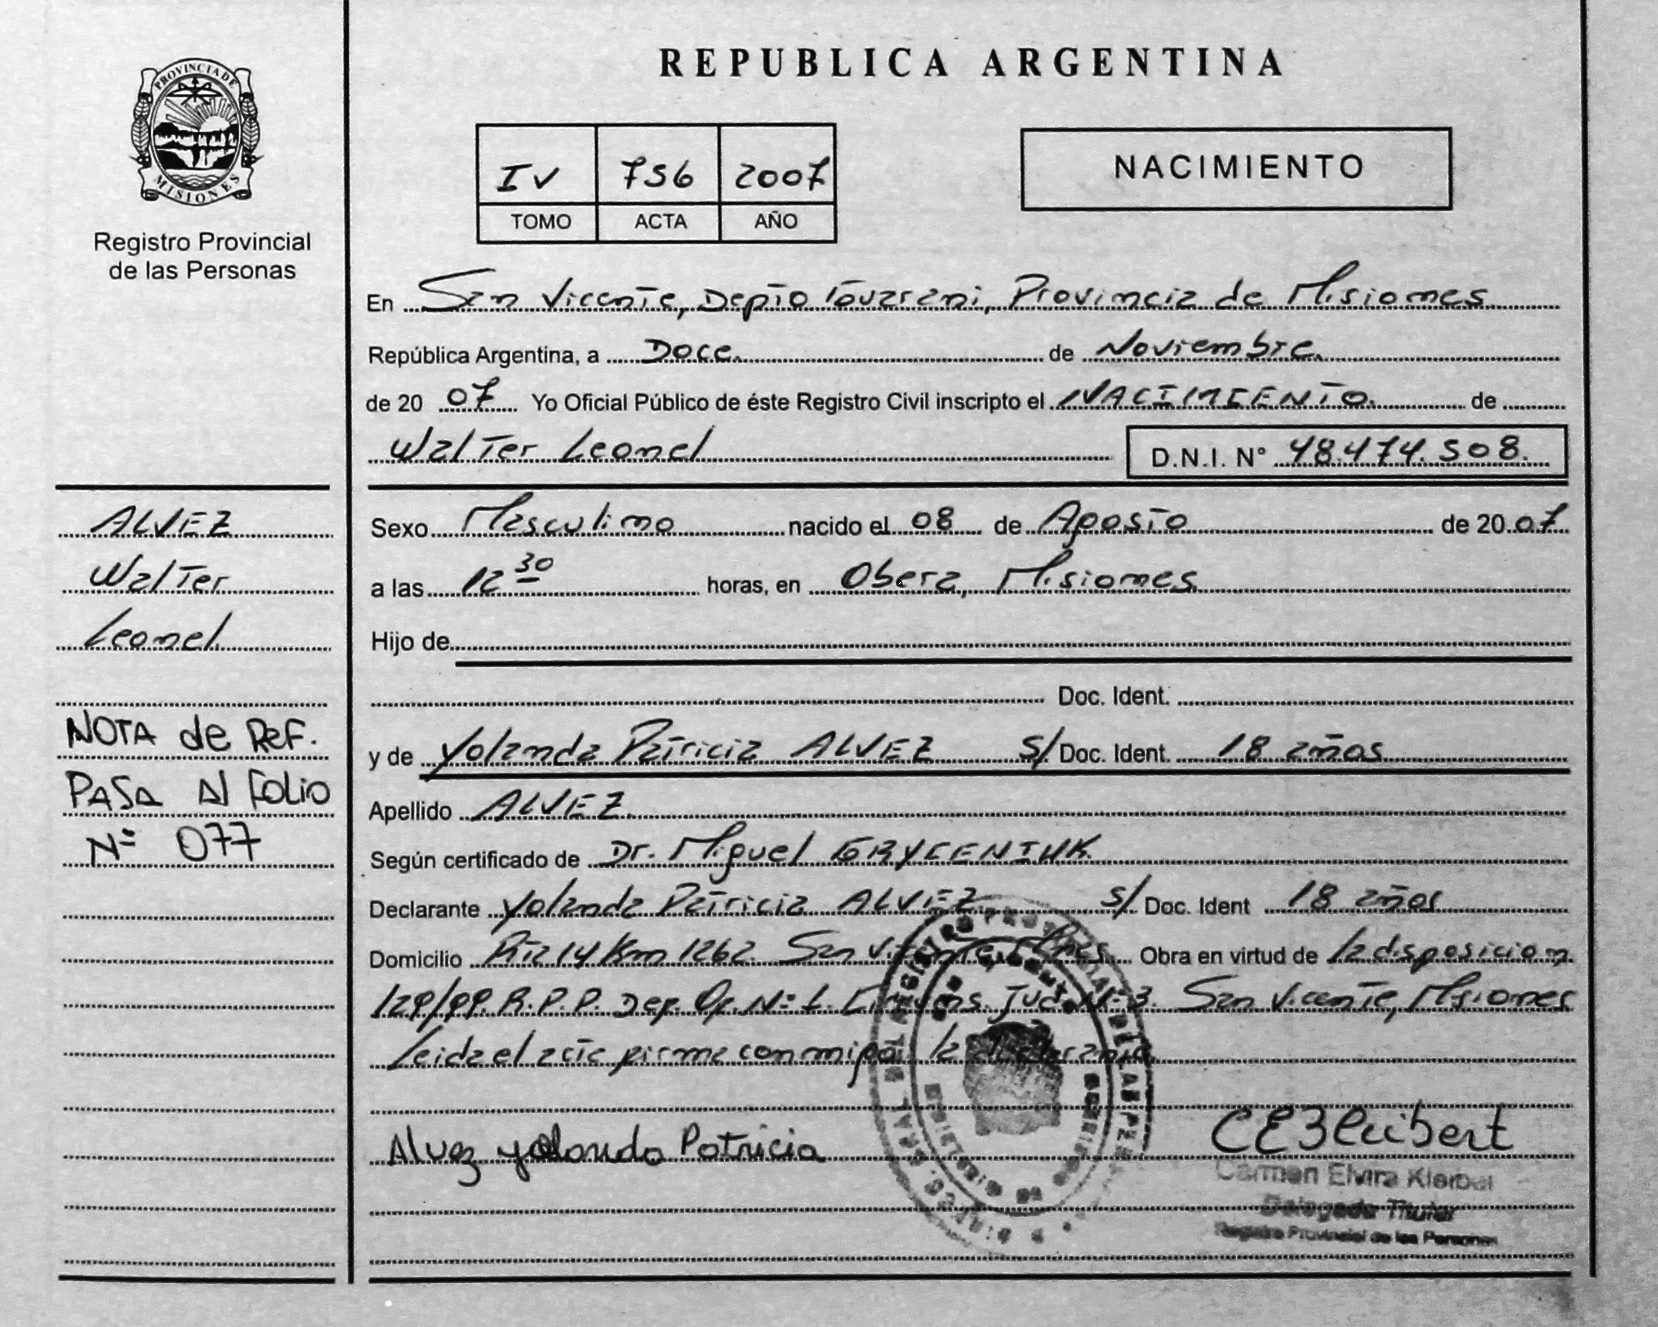 REPUBLICA ARGENTINA
PROVINCIA DE
MISIONES
Registro Provincial
de las Personas
IV 756 2007
TOMO ACTA AÑO
NACIMIENTO
En San Vicente, Depto Guarani, Provincia de Misiones
República Argentina, a Doce. de Noviembre.
de 20 07 Yo Oficial Público de éste Registro Civil inscripto el NACIMIENTO. de
Walter Leonel D.N.I. N° 48.474.508.
ALVEZ
Walter
Leonel.
NOTA de Ref.
PASA Al folio
Nº 077
Sexo Masculino nacido el 08 de Agosto de 20 07
a las 12 30 horas, en Obera, Misiones
Hijo de
Doc. Ident.
y de Yolanda Patricia ALVEZ S/ Doc. Ident. 18 años
Apellido ALVEZ.
Según certificado de Dr. Miguel GRYCENIUK.
Declarante Yolanda Patricia ALVEZ S/ Doc. Ident 18 años
Domicilio Rta 14 Km 1262. San Vicente, Mnes. Obra en virtud de la disposicion
129/99. R.P.P. Dep. Nº 1. Jud Nº 3. San Vicente, Misiones
Leida el acta firma conmigo la declarante
Alvez yolanda Patricia
Carmen Elvira
Delegada Titular
Registro Provincial de las Personas